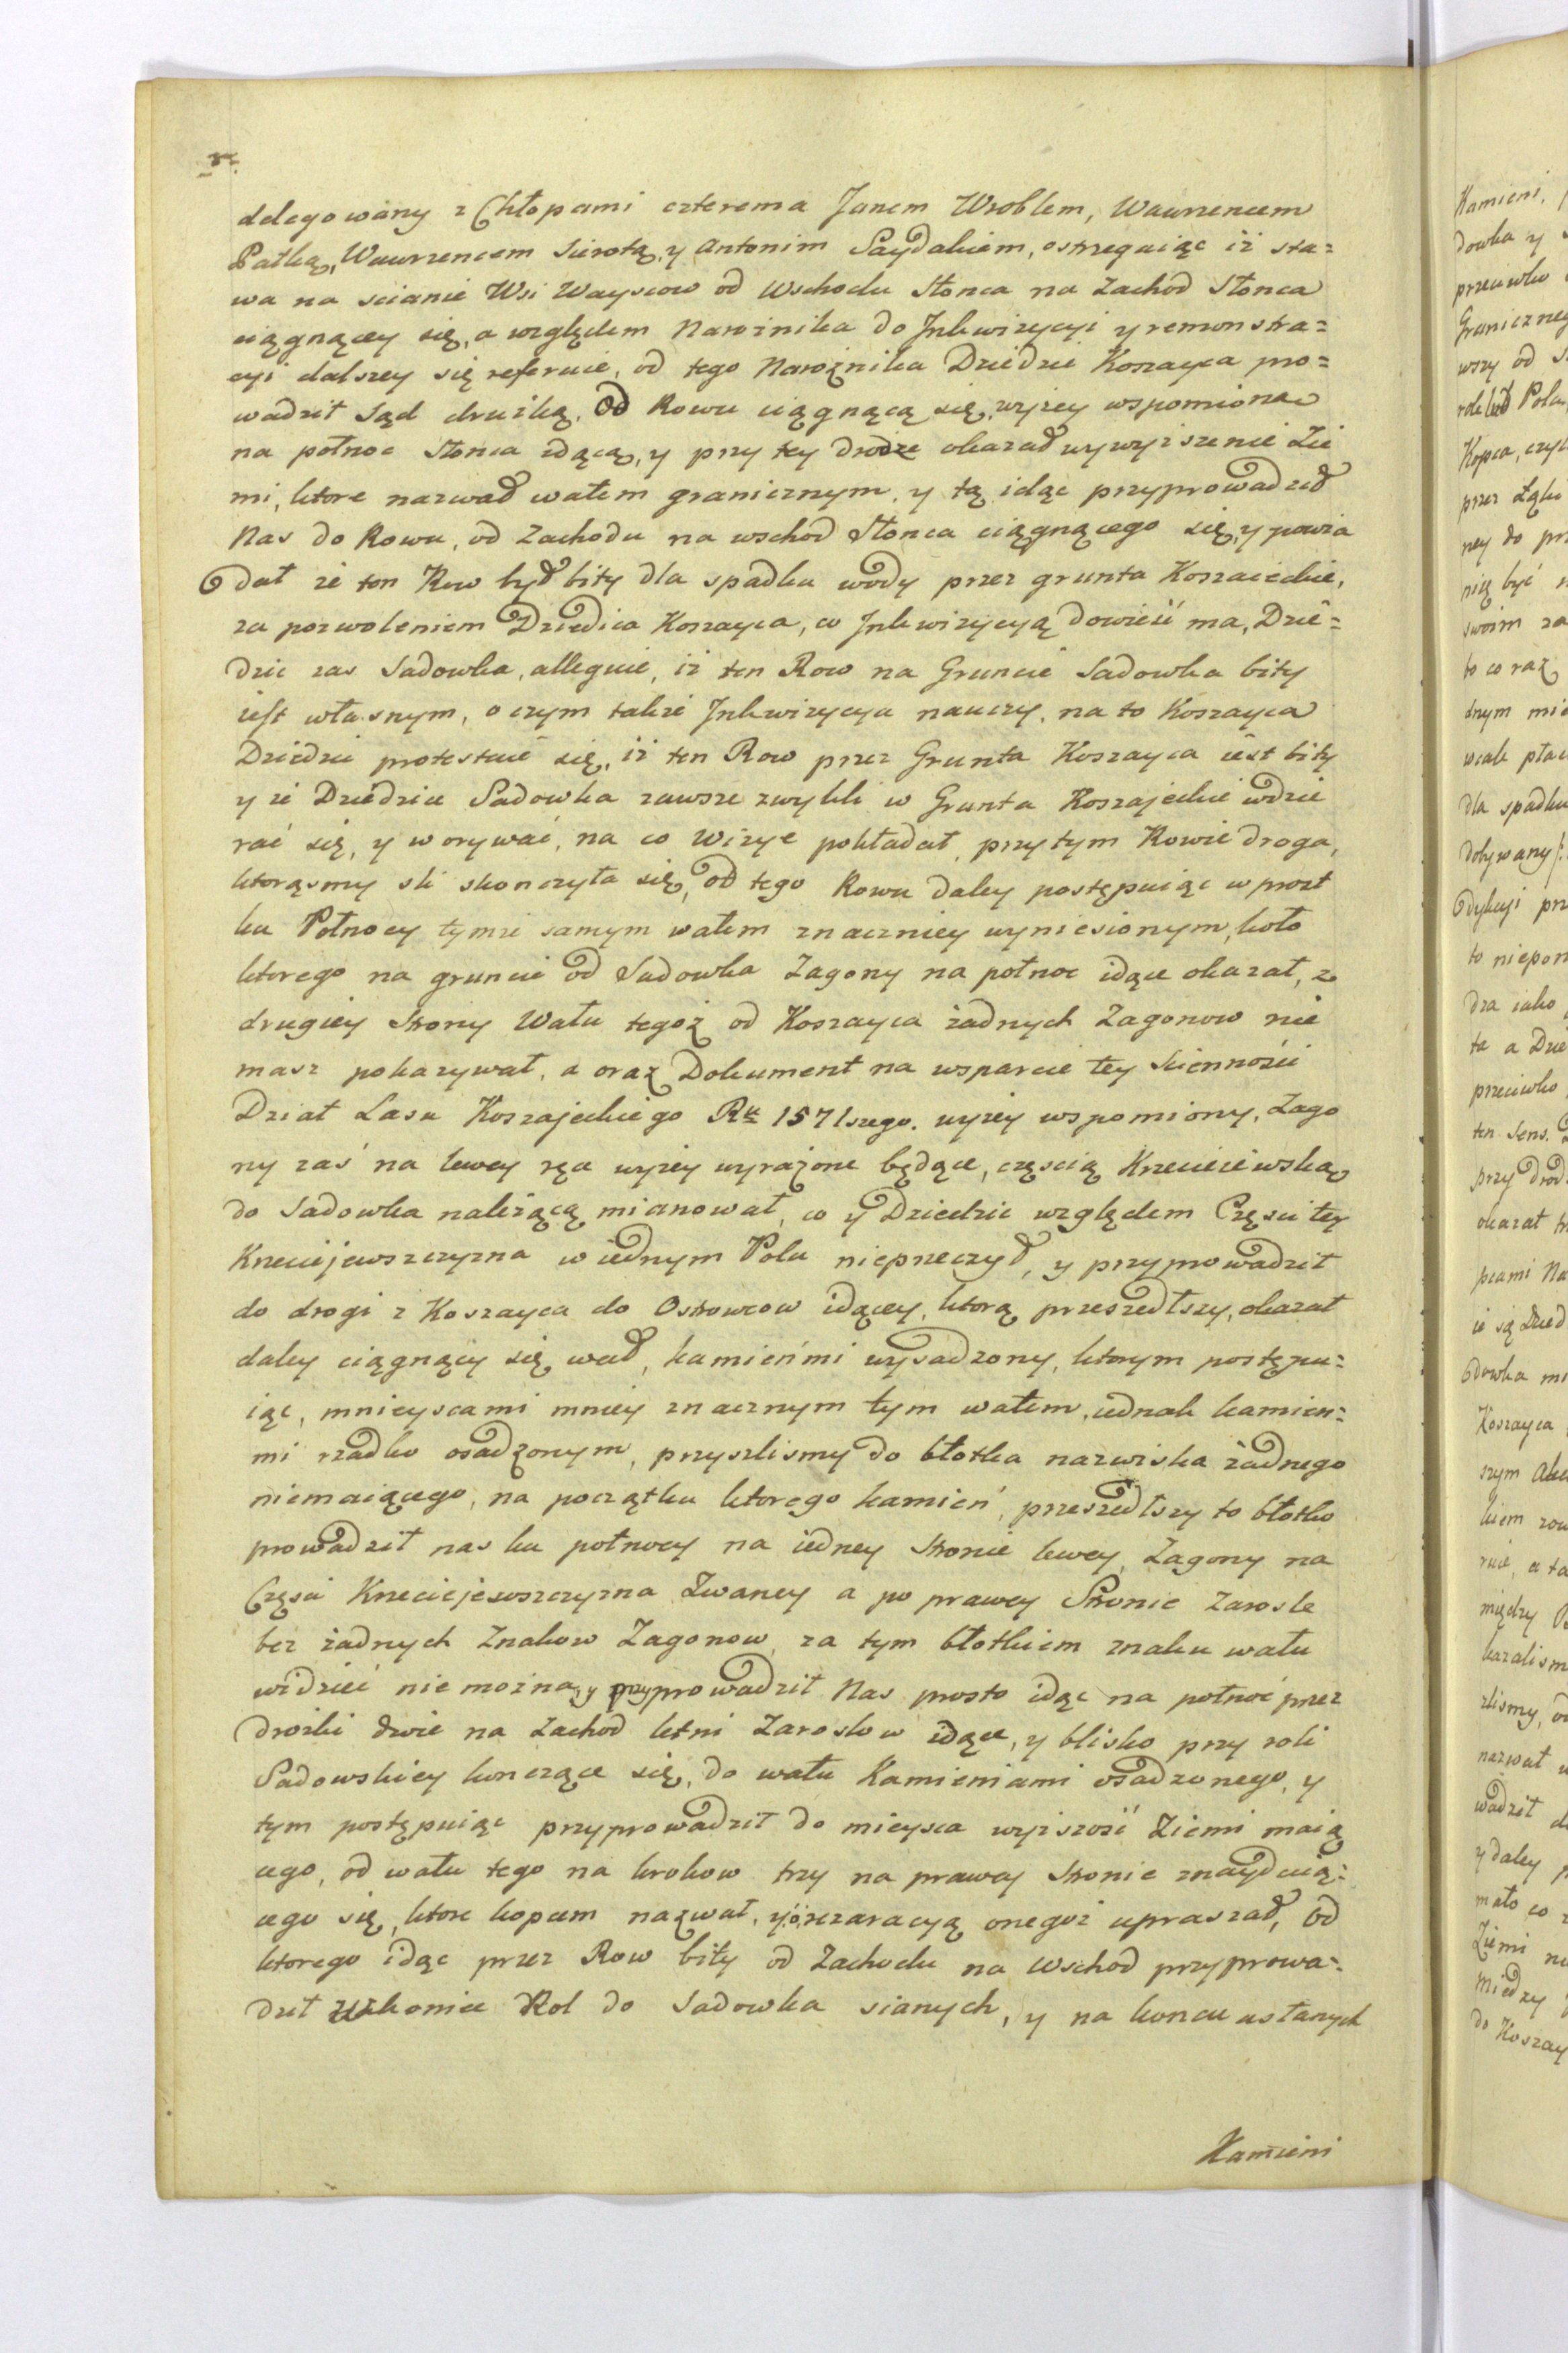 delegowany z Chłopami czterema Janem Wroblem, Wawrzencem
Pałką, Wawrzencem Sierotą, y Antonim Saydakiem, ostrzegaiąc iż sta=
wa na scianie Wsi Wayscow od Wschodu Słonca na Zachod Słonca
ciągnącey się, a względem Narożnika do Inkwizycyi y remonstra=
cyi dalszey się referuie, od tego Narożnika Dziedzic Koszayca pro=
wadził Sąd drużką, Od Rowu ciągnącą się, wyżey wspomiona
na połnoc Słonca idącą, y przy tey drodze okazał wywyiszenie Zie
mi, ktore nazwał wałem granicznym, y tą idąc przyprowadził
Nas do Rowu, od Zachodu na wschod Słonca ciągnącego się, y powia
dał że ten Row był bity dla spadku wody przez grunta Koszaieckie,
za pozwoleniem Dziedica Koszayca, co Inkwizycyą dowieść ma, Dzie=
dzic zas Sadowka, alleguie, iż ten Row na Gruncie Sadowka bity
iest własnym, o czym także Inkwizycya nauczy, na to Koszayca
Dziedzic protestuie się, iż ten Row przez Grunta Koszayca iest bity
y że Dziedzice Sadowka zawsze zwykli w Grunta Koszajeckie wdzie
rać się, y worywać, na co Wizye pokładał, przy tym Rowie droga,
ktorąsmy sli skonczyła się, od tego Rowu daley postępuiąc wprost
ku Połnocy tymże samym wałem znaczniey wyniesionym, koło
ktorego na gruncie od Sadowka Zagony na połnoc idące okazał, z
drugiey Strony Wału tegoż od Koszayca żadnych Zagonow nie
masz pokazywał, a oraz Dokument na wsparcie tey Scienności
Dział Lasu Koszajeckiego Ru 1571szego. wyżey wspomiony, Zago
ny zaś na lewey ręce wyżey wyrażone będące, częscią Krzeciciewską
do Sadowka należącą mianował, co y Dziedzic względem Częsci tey
Krzeciejewszczyzna w iednym Polu nieprzeczył, y przyprowadził
do drogi z Koszayca do Ostrowcow idącey, ktorą przeszedłszy, okazał
daley ciągnący się wał, kamieńmi wysadzony, ktorym postępu=
iąc, mnieyscami mniey znacznym tym wałem, iednak kamien=
mi rzadko osadzonym, przyszlismy do błotka nazwiska żadnego
niemaiącego, na początku ktorego kamień, przeszedłszy to błotko
prowadził nas ku połnocy na iedney Stronie lewey, Zagony na
Częsci Krzeciejewszczyzna Zwaney a po prawey Stronie Zarosle
bez żadnych Znakow Zagonow, za tym błotkiem znaku wału
widzieć nie można, y przyprowadził Nas prosto idąc na połnoc przez
drożki dwie na Zachod letni Zaroslow idące, y blisko przy roli
Sadowskiey konczące się, do wału Kamieniami osadzonego, y
tym postępuiąc przyprowadził do mieysca wyiszość Ziemi maią
cego, od wału tego na krokow trzy na prawey Stronie znayduią=
cego się, ktore kopcem nazwał, y o rezaracyą onegoż upraszał, Od
ktorego idąc przez Row bity od Zachodu na Wschod przyprowa=
dził Rol do Sadowka sianych, y na koncu
Kamieni